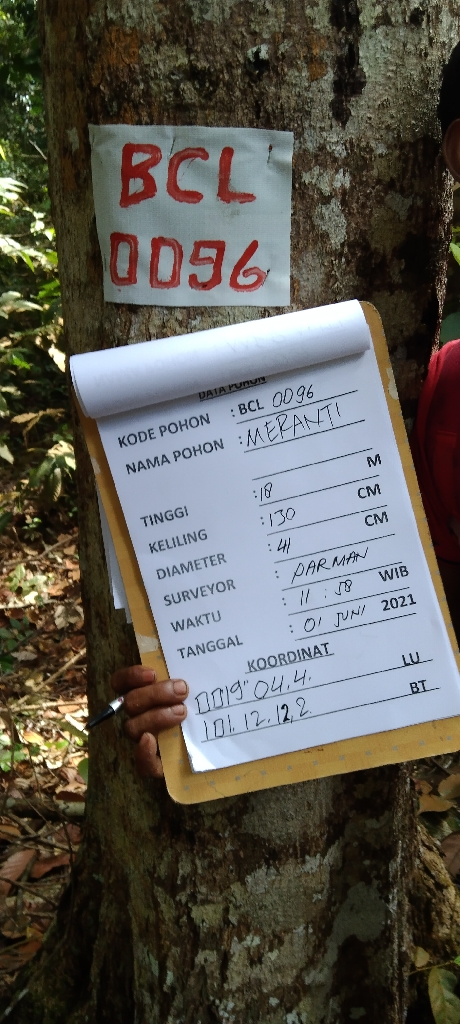 BCL
0096
DATA POHON
KODE POHON : BCL 0096
NAMA POHON : MERANTI
TINGGI : 18 M
KELILING : 130 CM
DIAMETER : 41 CM
SURVEYOR : PARMAN
WAKTU : 11 : 58 WIB
TANGGAL : 01 JUNI 2021
KOORDINAT
0019" 04.4. LU
101.12.12,2 BT